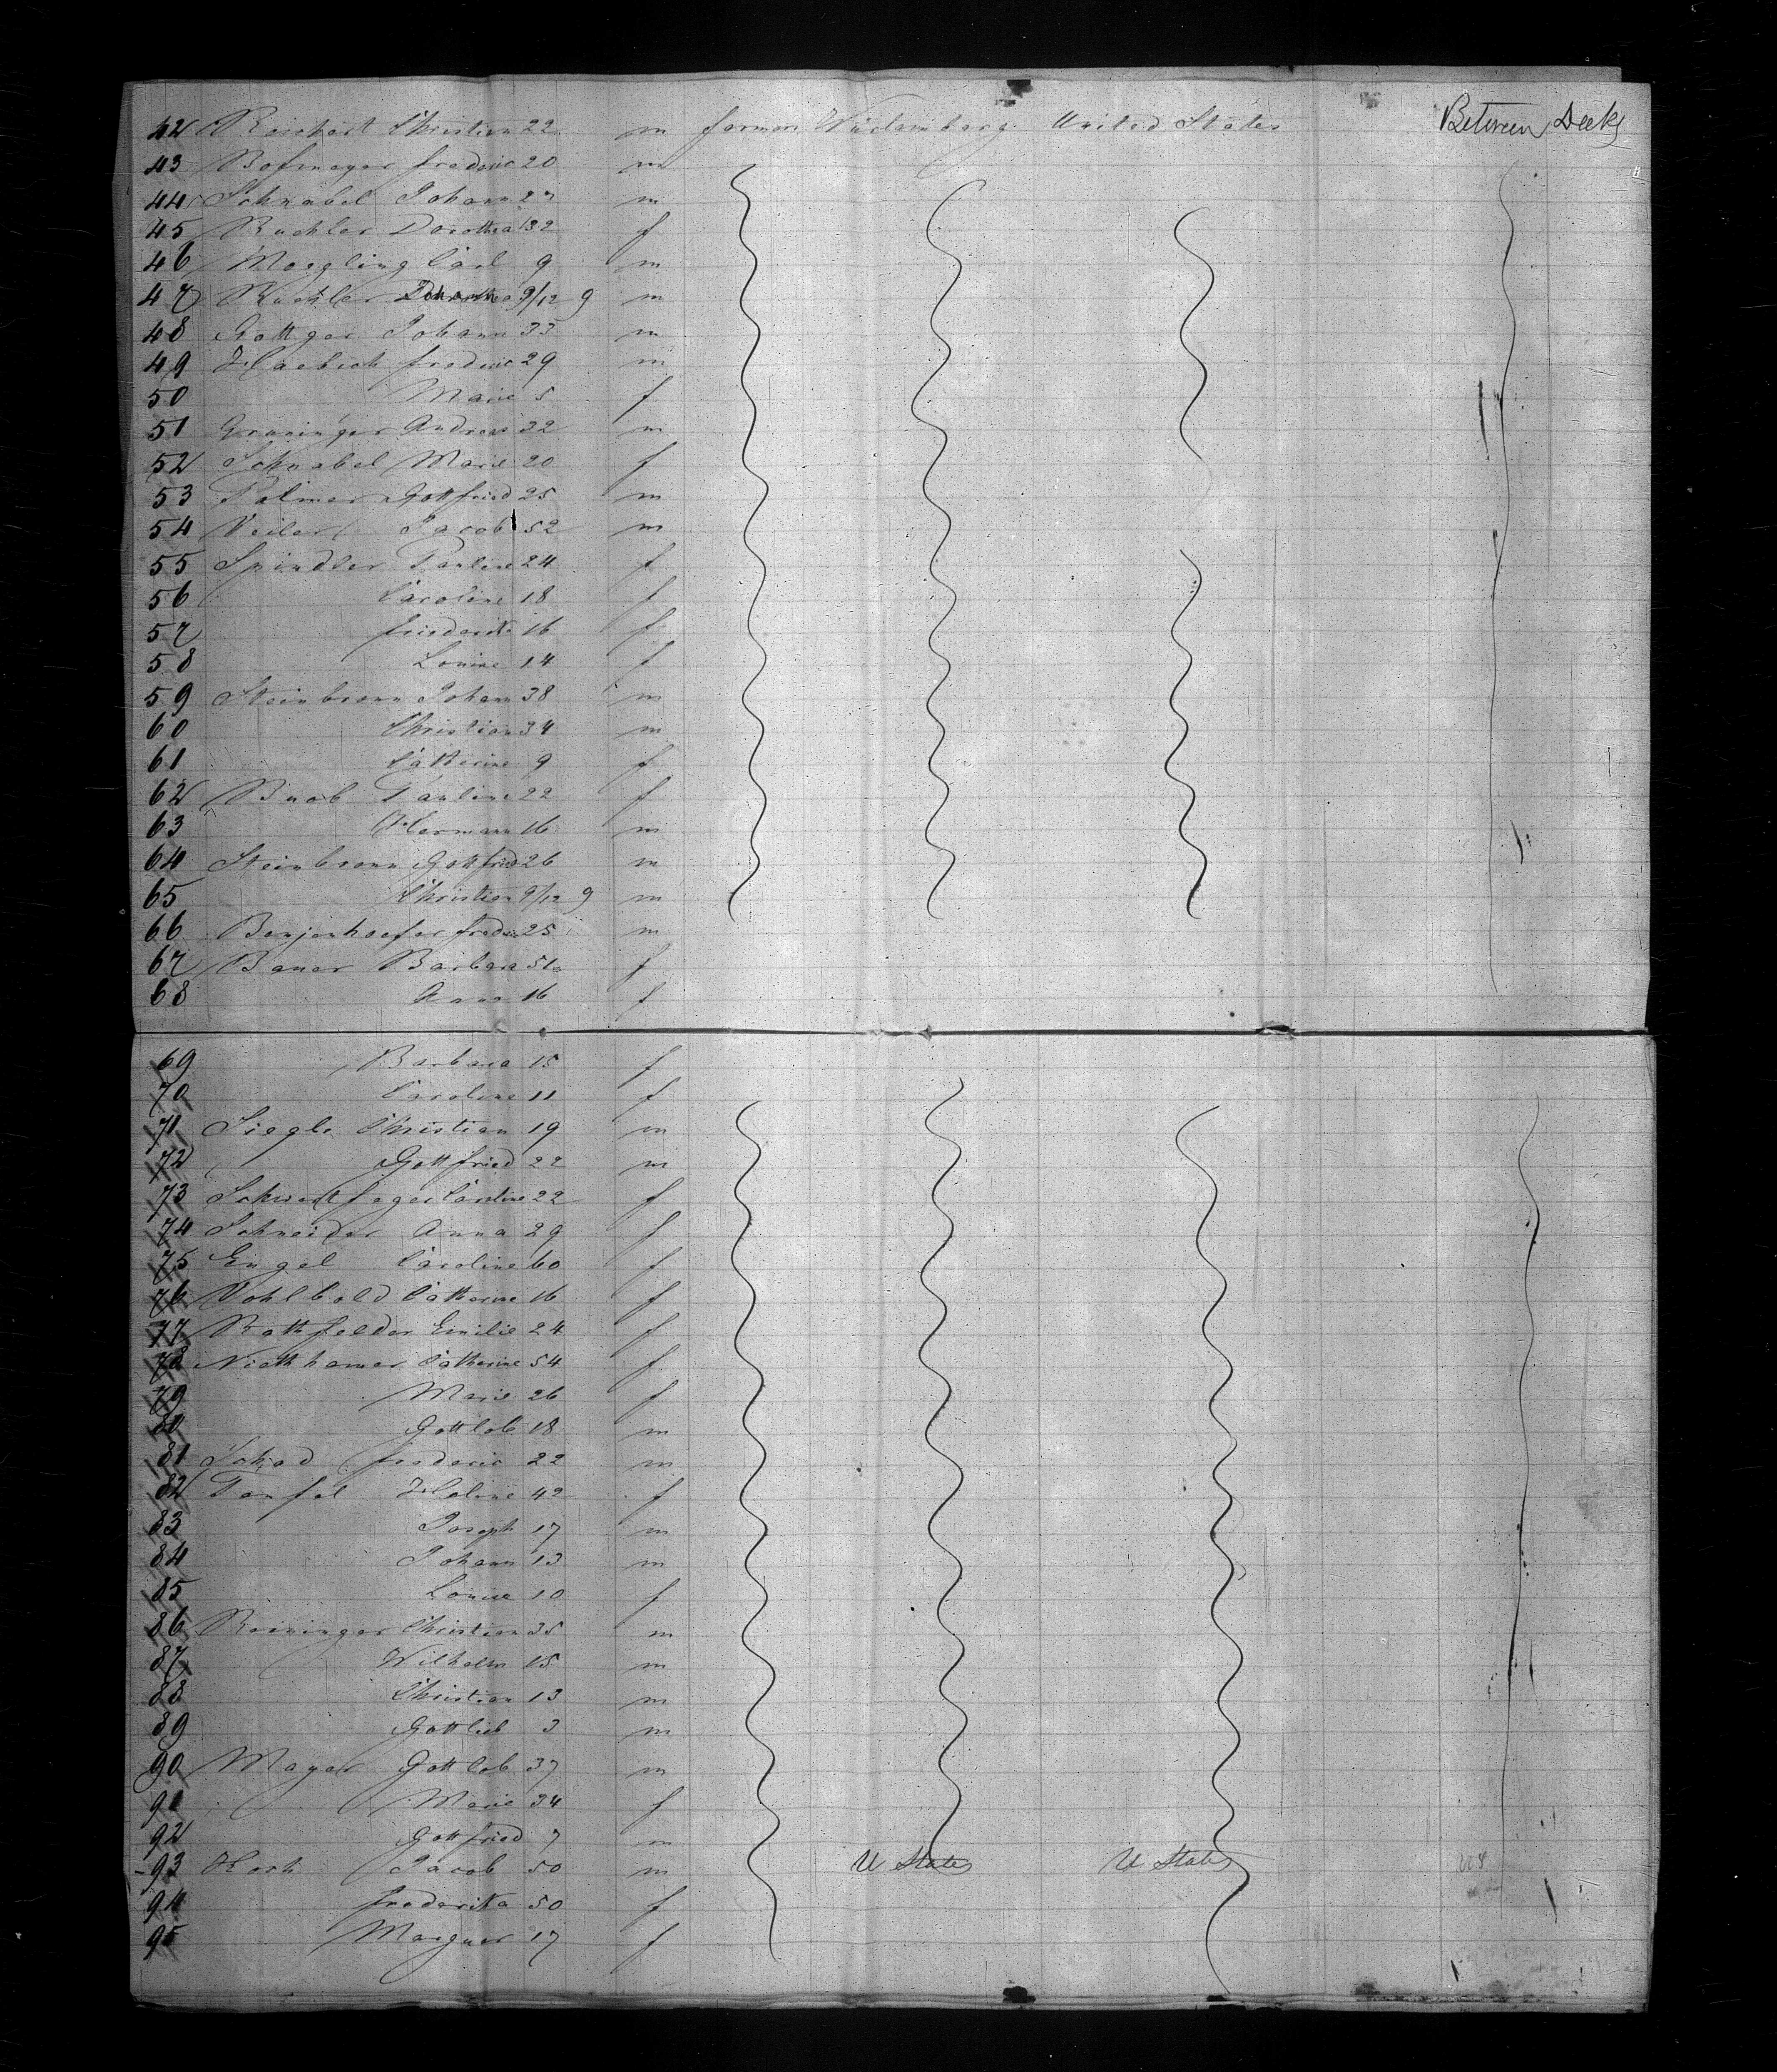 42 Reichert Christian 22 m farmers Würtemberg United States Between Decks
43 Bofmayer frederic 20 m
44 Schnabel Johann 27 m
45 Buehler Dorothea 32 f
46 Moegling Carl 9 m
47 Buehler Johann 9/12 9 m
48 Gottger Johann 33 m
49 Haebich frederic 29 m
50 Marie 5 f
51 Gruninger Andreas 32 m
52 Schnabel Marie 20 f
53 Palmer Gottfried 25 m
54 Veiler Jacob 52 m
55 Spindler Pauline 24 f
56 Caroline 18 f
57 friederike 16 f
58 Louise 14 f
59 Steinbronn Johann 38 m
60 Christian 34 m
61 Catherine 9 f
62 Buob Pauline 22 f
63 Hermann 16 m
64 Steinbronn Gottfried 26 m
65 Christian 9/12 9 m
66 Benjenhoefer frederic 25 m
67 Bauer Barbara 51 f
68 Anna 16 f
69 Barbara 15 f
70 Caroline 11 f
71 Siegle Christian 19 m
72 Gottfried 22 m
73 Schwertfeger Caroline 22 f
74 Schneider Anna 29 f
75 Engel Caroline 60 f
76 Vohlbold Catherine 16 f
77 Rothfelder Emilie 24 f
78 Niethhamer Catherine 54 f
79 Marie 26 f
80 Gottlob 18 m
81 Schad frederic 22 m
82 Teufel Heline 42 f
83 Joseph 17 m
84 Johann 13 m
85 Louise 10 f
86 Reininger Christian 35 m
87 Wilhelm 15 m
88 Christian 13 m
89 Gottlieb 3 m
90 Mayer Gottlob 37 m
91 Marie 34 f
92 Gottfried 7 m
93 Koch Jacob 50 m U States U States US
94 frederika 50 f
95 17 f